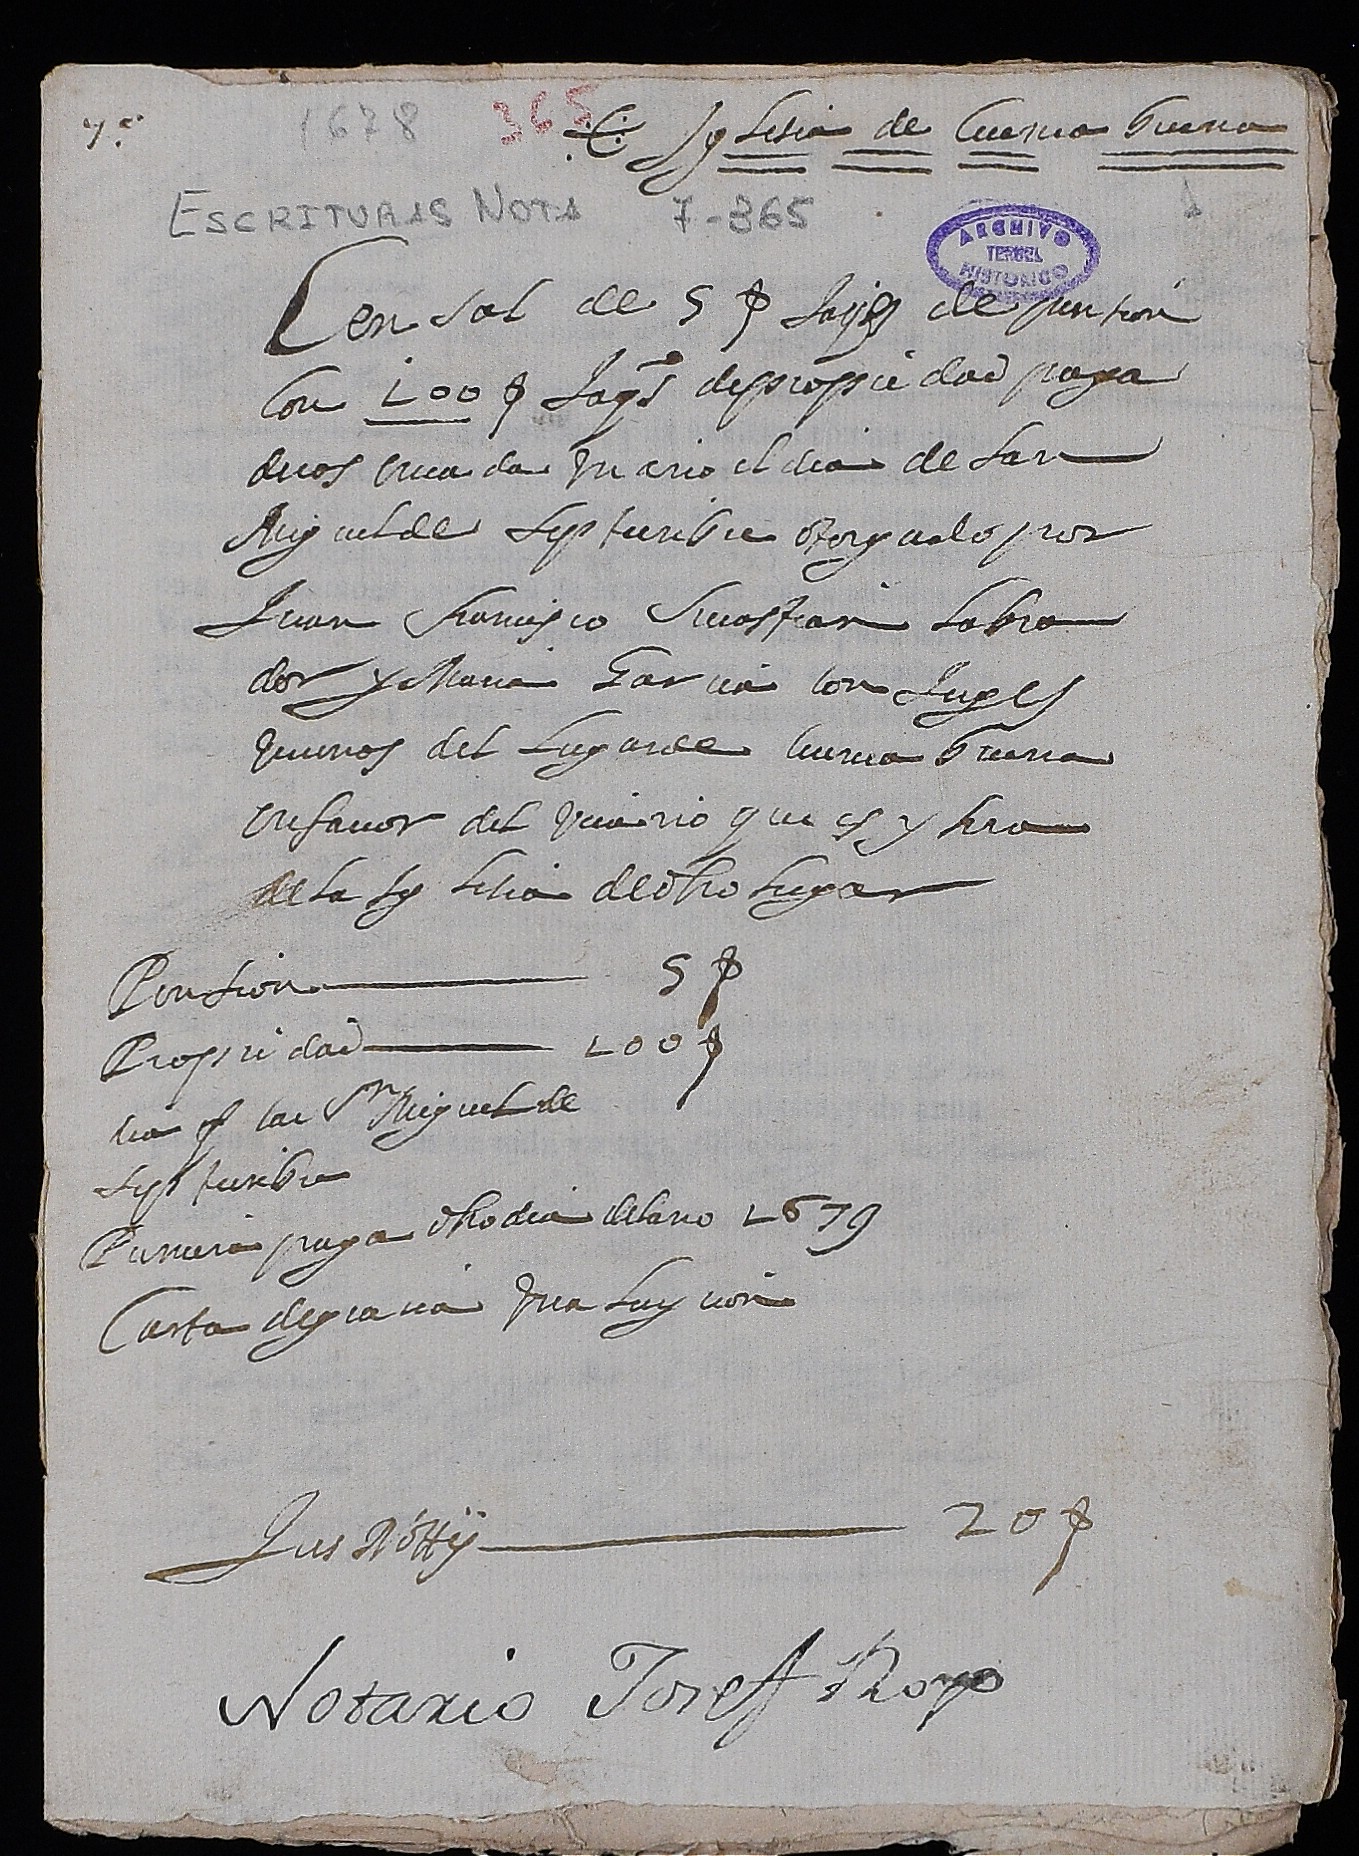 1678 365 Iglesia de Cueua buena
ESCRITURAS NOTS 7-365 1
ARCHIVO
TERUEL
HISTORICO
Censal de 5 ₶ Jaqs de pension
Con 100 ₶ Jaqs de propiedad paga
deros en cada vn año el dia de San
Miguel de Septiembre otorgado por
Juan Francisco labra
dor y Maria Garcia conjuges
vecinos del lugar de Cueua buena
en fauor del vicario que es y sera
de la Iglesia de dho lugar
Pension 5 ₶
Propiedad 100 ₶
Sn Miguel de
Septiembre
Primera paga dho dia del año 1679
Carta de gracia luycion
Jus 20 ₶
Notario Josef Royo